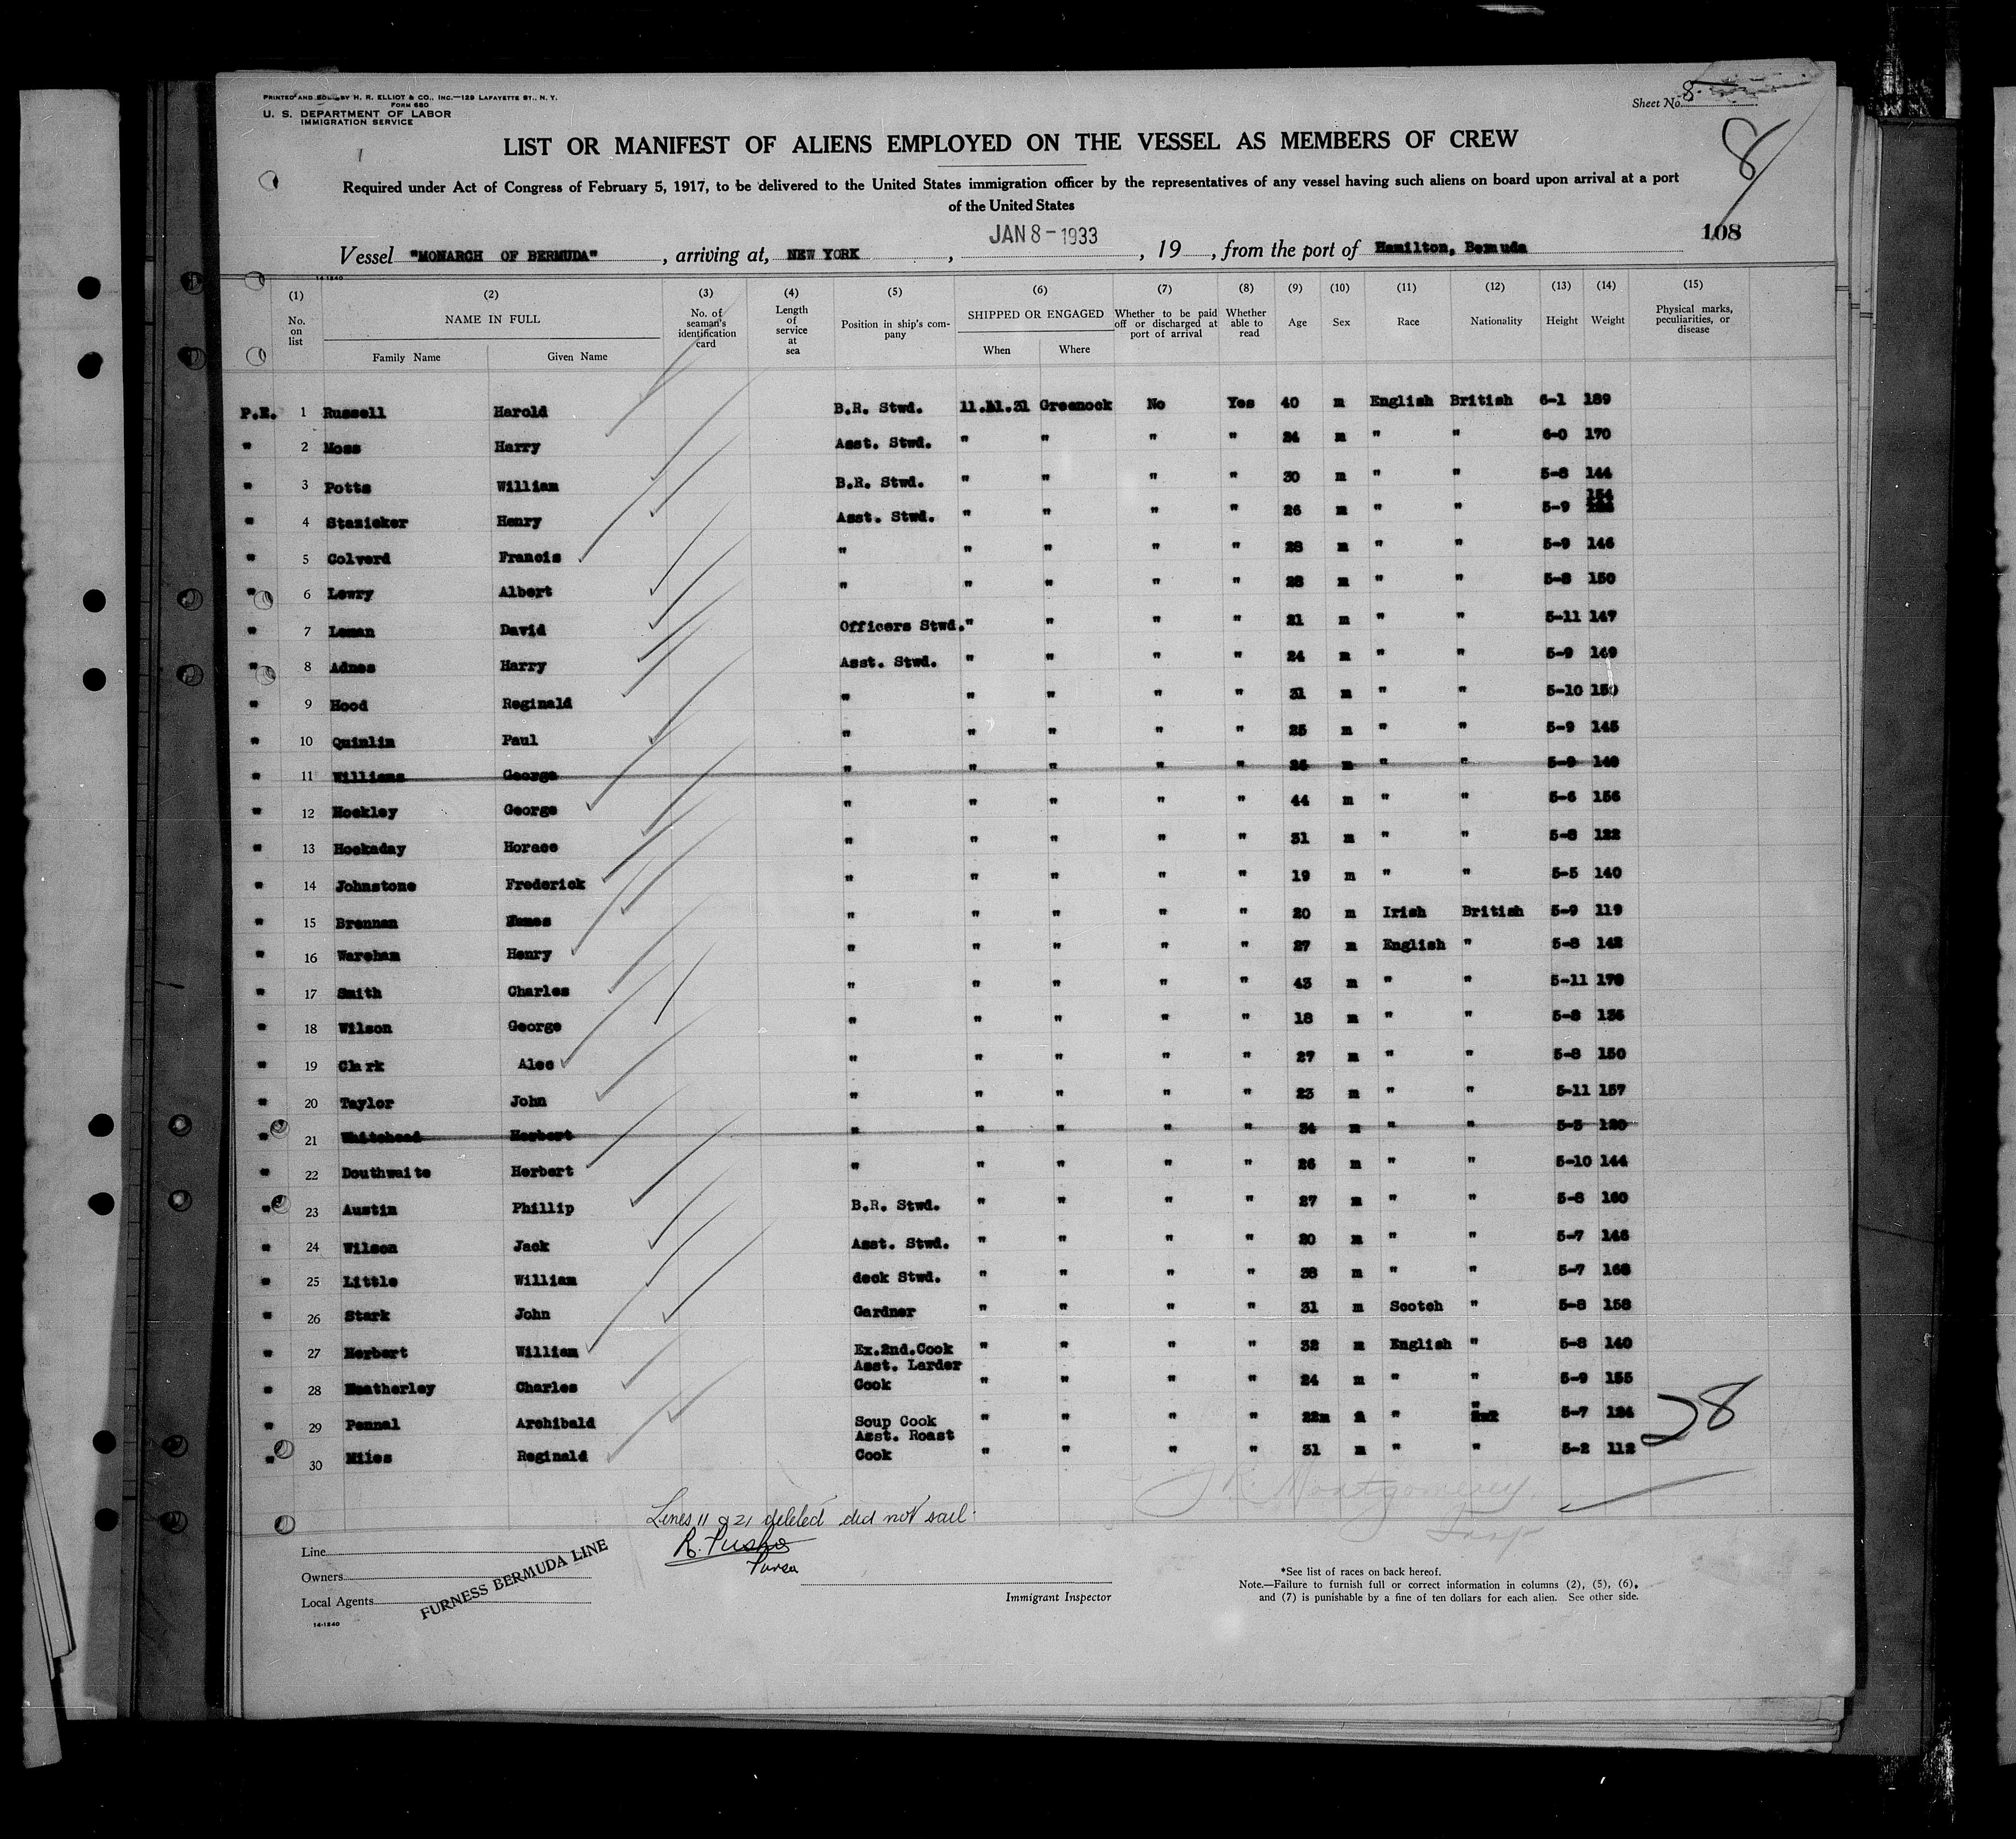 PRINTED AND SOLD BY H. R. ELLIOT & CO., INC.—129 LAFAYETTE ST., N. Y.
FORM 680
U. S. DEPARTMENT OF LABOR
IMMIGRATION SERVICE
Sheet No. 8
8
LIST OR MANIFEST OF ALIENS EMPLOYED ON THE VESSEL AS MEMBERS OF CREW
Required under Act of Congress of February 5, 1917, to be delivered to the United States immigration officer by the representatives of any vessel having such aliens on board upon arrival at a port
of the United States
108
Vessel "MONARCH OF BERMUDA", arriving at, NEW YORK, JAN 8-1933, 19 , from the port of Hamilton, Bemuda
14-1240
(1) No. on list (2) NAME IN FULL Family Name Given Name (3) No. of seaman's identification card (4) Length of service at sea (5) Position in ship's company (6) SHIPPED OR ENGAGED When Where (7) Whether to be paid off or discharged at port of arrival (8) Whether able to read (9) Age (10) Sex (11) Race (12) Nationality (13) Height (14) Weight (15) Physical marks, peculiarities, or disease
P.E. 1 Russell Harold B.R. Stwd. 11.11.31 Greenock No Yes 40 m English British 6-1 189
" 2 Moss Harry Asst. Stwd. " " " " 24 m " " 6-0 170
" 3 Potts William B.R. Stwd. " " " " 30 m " " 5-8 144
" 4 Stazieker Henry Asst. Stwd. " " " " 26 m " " 5-9 154
" 5 Colverd Francis " " " " " 28 m " " 5-9 146
" 6 Lowry Albert " " " " " 28 m " " 5-8 150
" 7 Leman David Officers Stwd. " " " " 21 m " " 5-11 147
" 8 Adnes Harry Asst. Stwd. " " " " 24 m " " 5-9 149
" 9 Hood Reginald " " " " " 31 m " " 5-10 150
" 10 Quinlin Paul " " " " " 25 m " " 5-9 145
" 11 Williams George " " " " " 26 m " " 5-9 140
" 12 Hockley George " " " " " 44 m " " 5-6 156
" 13 Hockaday Horace " " " " " 31 m " " 5-8 122
" 14 Johnstone Frederick " " " " " 19 m " " 5-5 140
" 15 Brennan " " " " " 20 m Irish British 5-9 119
" 16 Wareham Henry " " " " " 27 m English " 5-8 142
" 17 Smith Charles " " " " " 43 m " " 5-11 170
" 18 Wilson George " " " " " 18 m " " 5-8 136
" 19 Clark Alec " " " " " 27 m " " 5-8 150
" 20 Taylor John " " " " " 23 m " " 5-11 157
" 21 Whitehead Herbert " " " " " 34 m " " 5-5 120
" 22 Douthwaite Herbert " " " " " 26 m " " 5-10 144
" 23 Austin Phillip B.R. Stwd. " " " " 27 m " " 5-8 160
" 24 Wilson Jack Asst. Stwd. " " " " 20 m " " 5-7 146
" 25 Little William deck Stwd. " " " " 38 m " " 5-7 168
" 26 Stark John Gardner " " " " 31 m Scotch " 5-8 158
" 27 Herbert William Ex.2nd.Cook " " " " 32 m English " 5-8 140
" 28 Heatherley Charles Asst. Larder Cook " " " " 24 m " " 5-9 155
" 29 Pennal Archibald Soup Cook " " " " 22m " " 5-7 124
" 30 Miles Reginald Asst. Roast Cook " " " " 31 m " " 5-2 112
28
J R Montgomery
Insp
Lines 11 & 21 deleted did not sail.
Purser
Line
Owners
Local Agents
FURNESS BERMUDA LINE
14-1240
Immigrant Inspector
*See list of races on back hereof.
Note.—Failure to furnish full or correct information in columns (2), (5), (6),
and (7) is punishable by a fine of ten dollars for each alien. See other side.